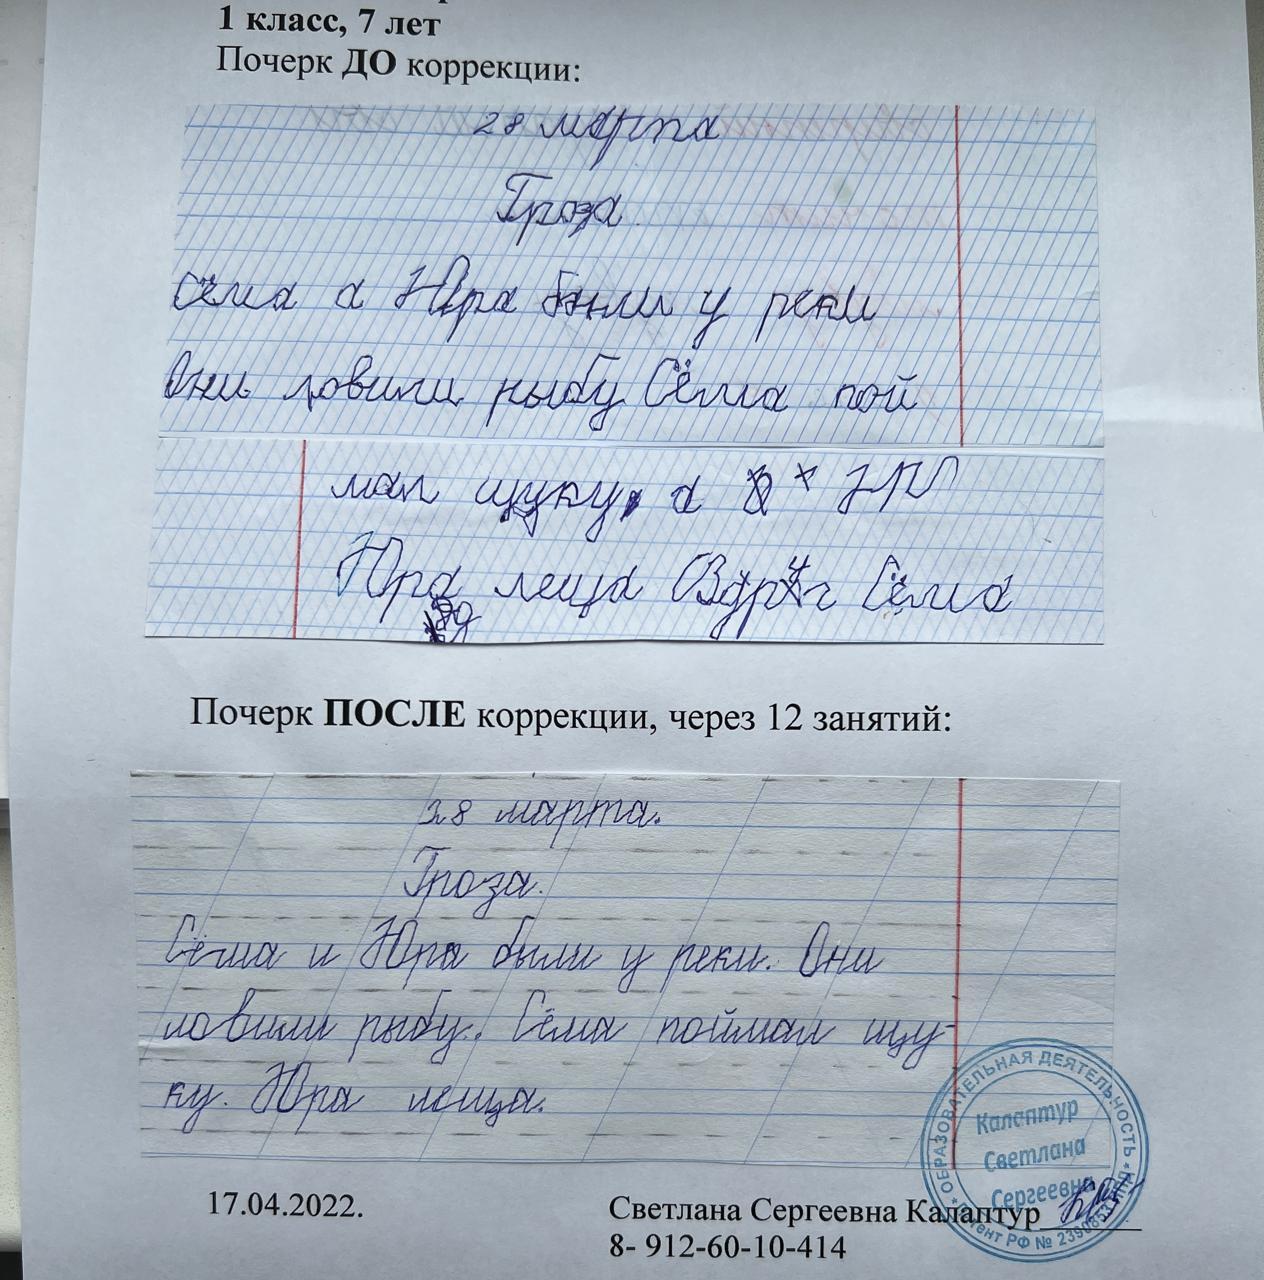 1 класс, 7 лет
Почерк ДО коррекции:
28 марта
Гроза
Сёма а Юра были у реки
Они ловили рыбу Сёма пой
мал щуку, а Ю
Юра леща Вдруг Сёма
Почерк ПОСЛЕ коррекции, через 12 занятий:
28 марта.
Гроза.
Сёма и Юра были у реки. Они
ловили рыбу. Сёма поймал щу-
ку. Юра леща.
ОБРАЗОВАТЕЛЬНАЯ ДЕЯТЕЛЬНОСТЬ
Калаптур
Светлана
Сергеевна
Патент РФ №
17.04.2022.
Светлана Сергеевна Калаптур
8- 912-60-10-414